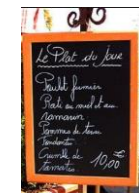 Le Plat du Jour
Poulet fermier
Roti au miel et au
romarin
Pommes de terre
fondantes
Crumble de
tomates 10,00€